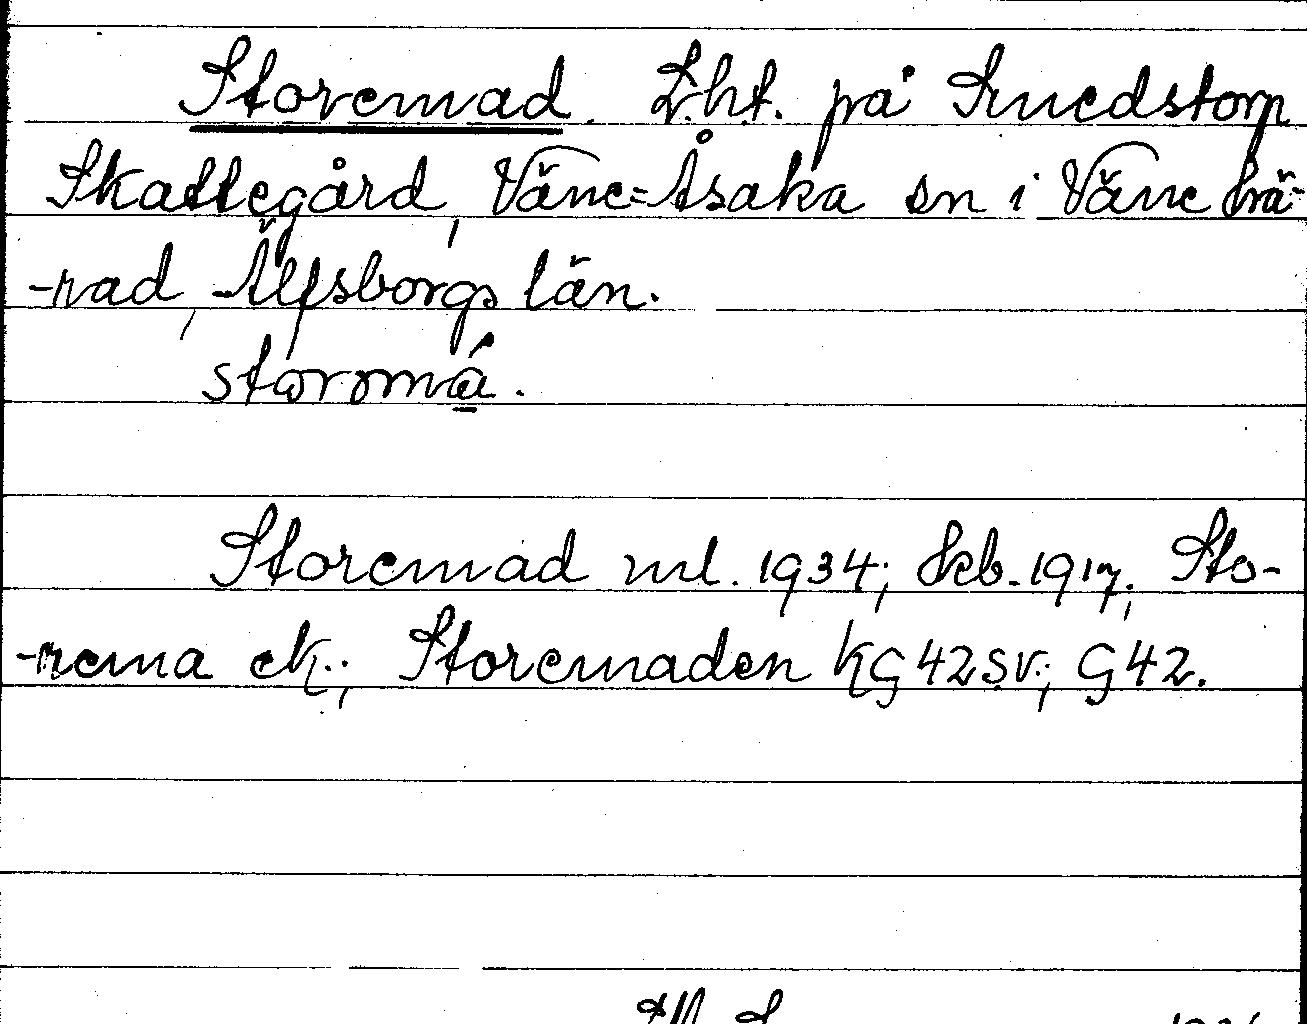 Storemad. Lht. på Smedstorp
Skattegård, Väne=Åsaka sn i Väne hä-
-rad, Älfsborgs län.
storomá.
Storemad ml. 1934; Jeb. 1917; Sto-
-rema ek.; Storemaden KG42SV.; G42.